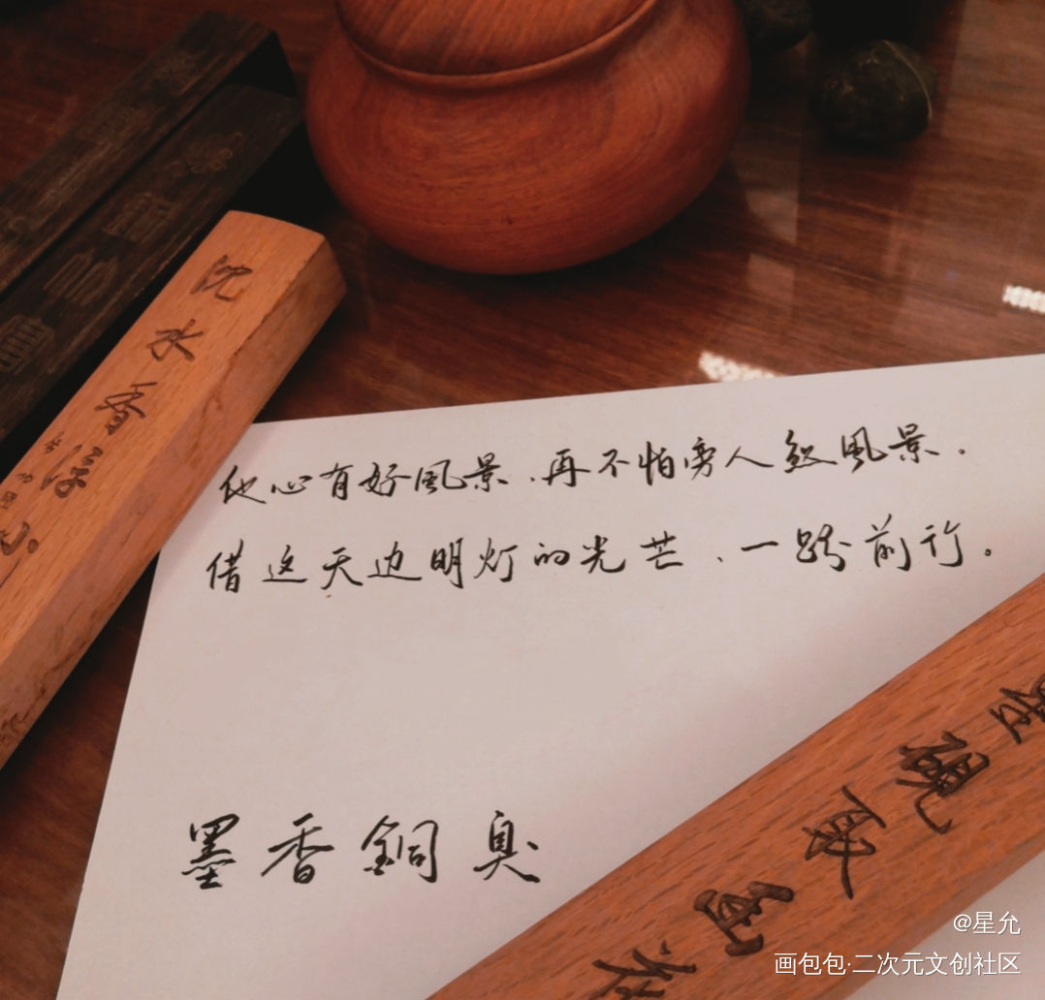 他心有好風景,再不怕旁人煞風景.
借这天边明灯的光芒、一路前行。
墨香銅臭
沈水香浮
硯
@星允
画包包·二次元文创社区